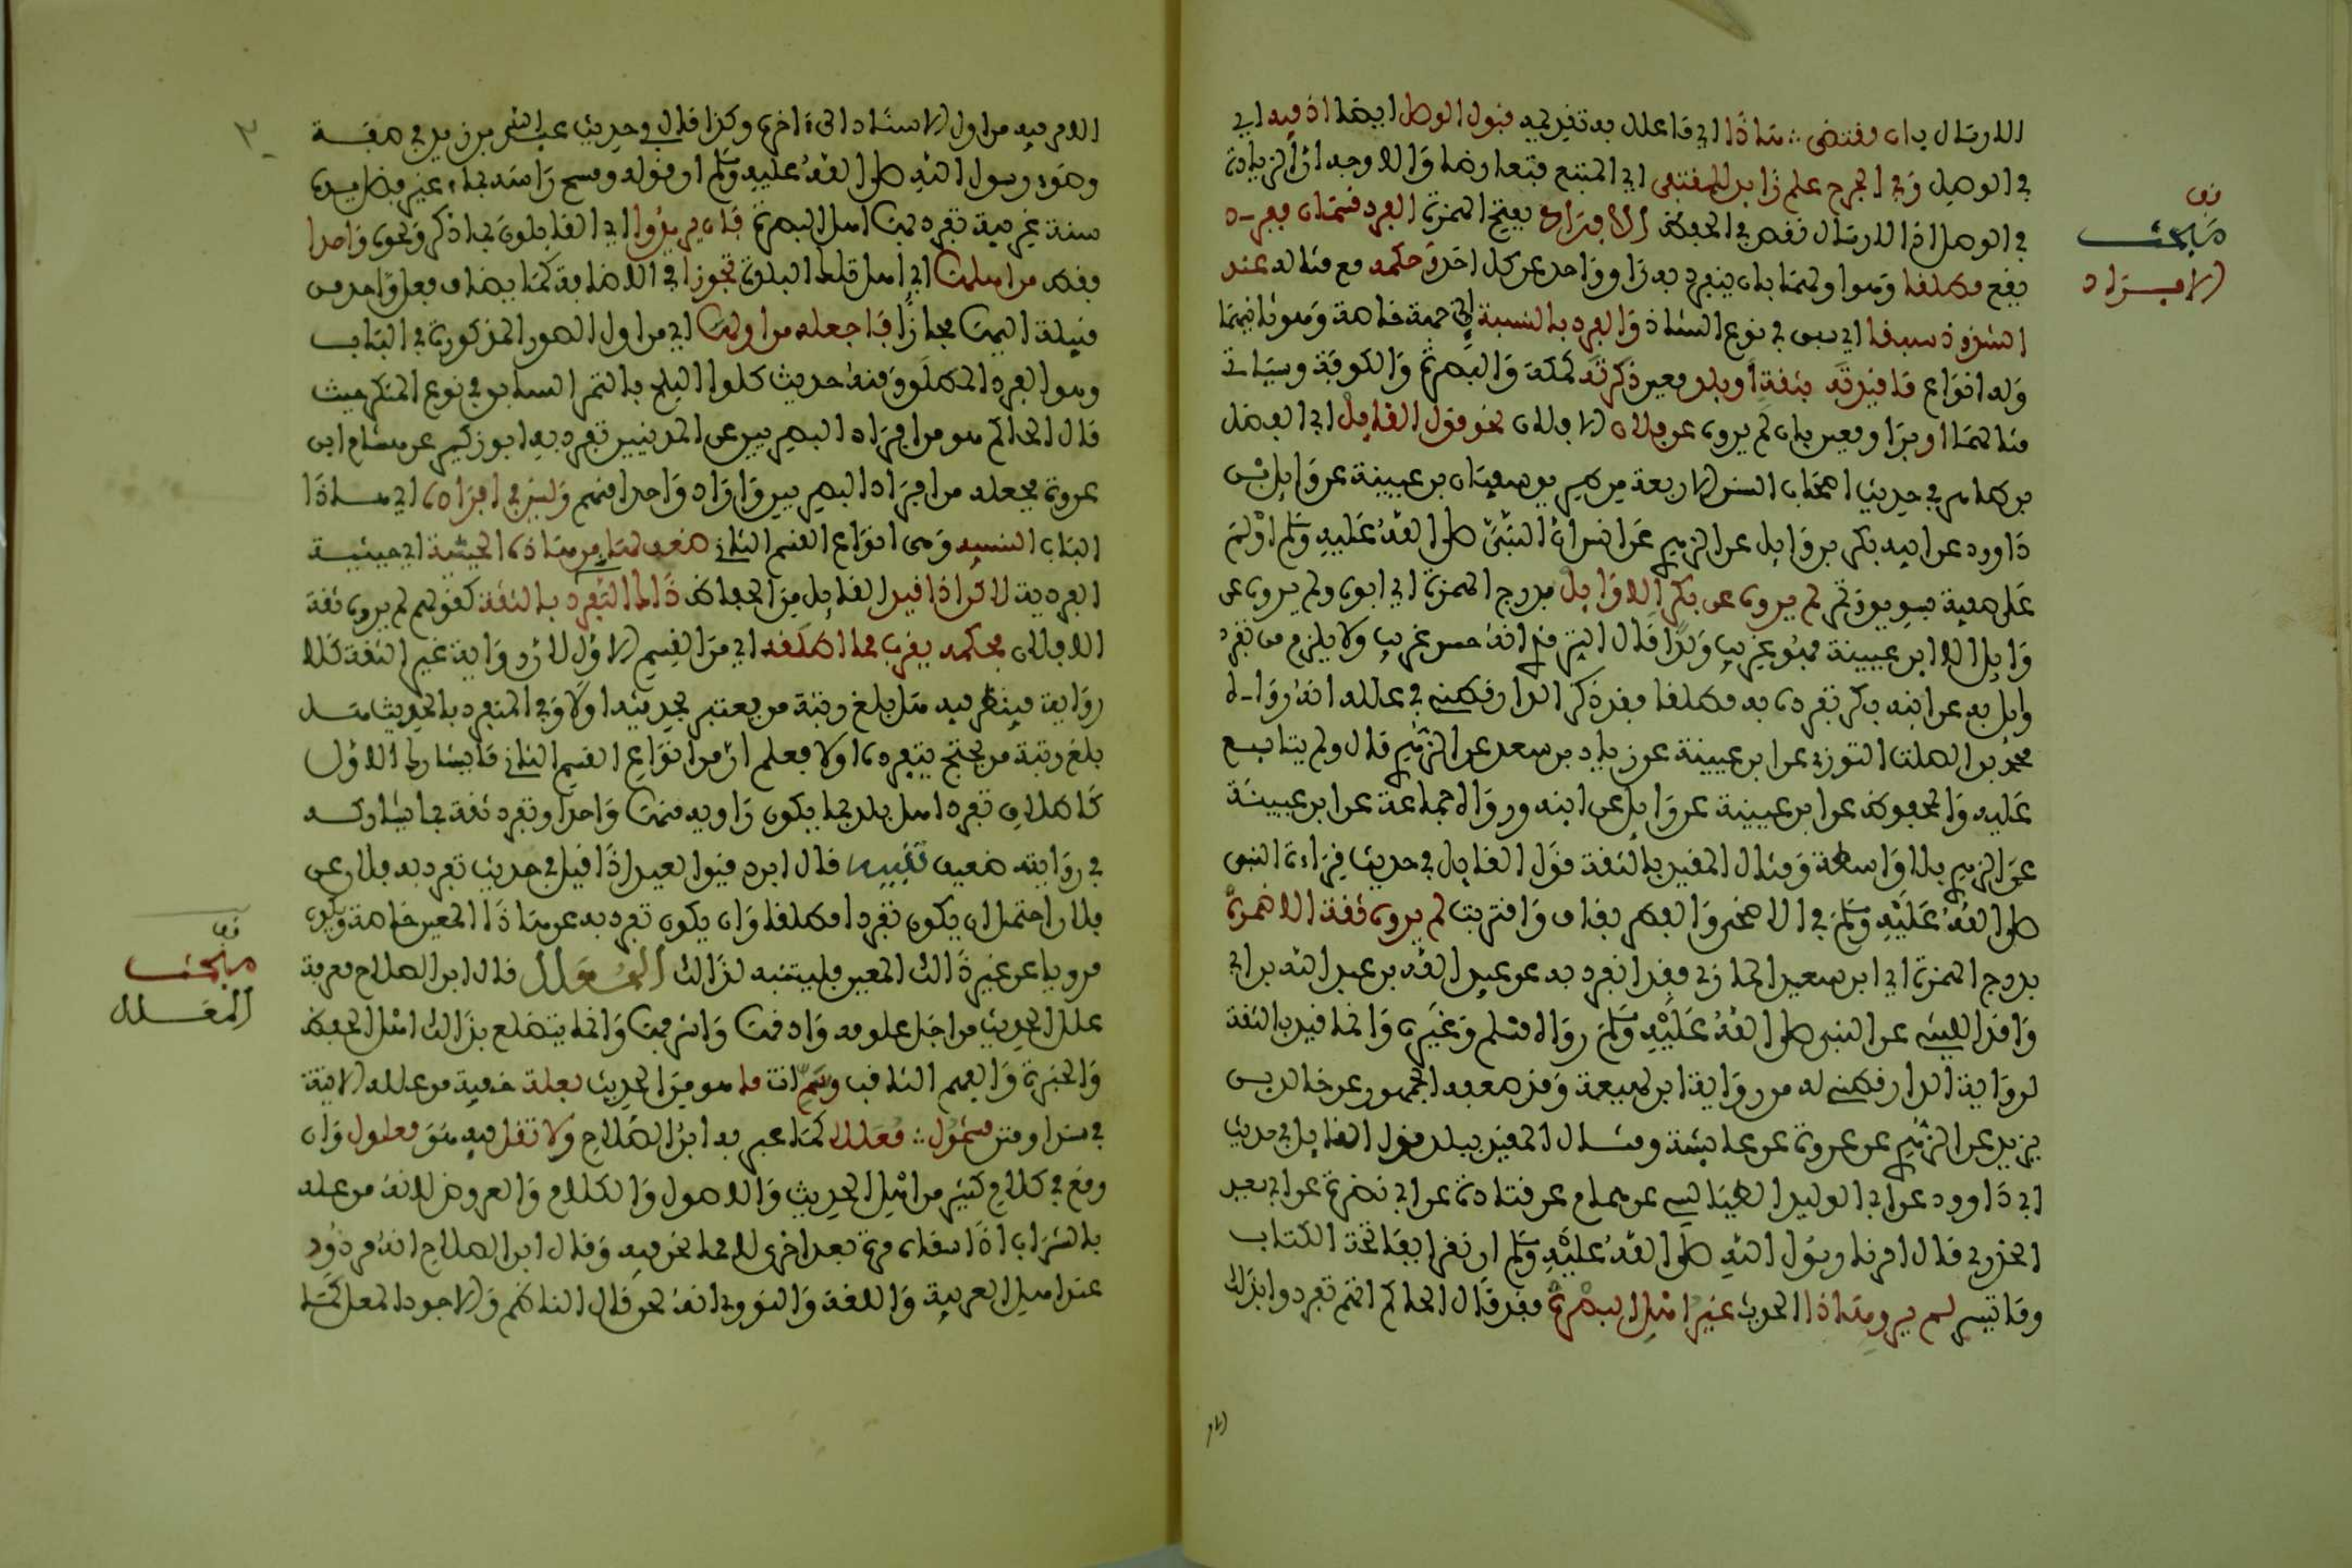 الارسال بان يقتضي :: هاذا اي ما علل به تقديمه قبول الوصل ايضا اذ فيه اي
في الوصل وفي الجرح علم زايد للمقتفي اي المتبع فتعارضا والاوجه ان الزيادة
في الوصل اذ الارسال نقص في الحفظ الافراد بفتح الهمزة الفرد قسمان ففرد
يقع مطلقا وهو اولهما بان ينفرد به راو واحد عن كل احد وحكمه مع مثاله عند
الشذوذ سبقا اي سبق في نوع الشاذ والفرد بالنسبة الى جهة خاصة وهو ثانيهما
وله انواع ما قيدته بثقة او ببلد معين ذكرته كمكة والبصرة والكوفة وسياتي
مثالهما او براو معين بان لم يروه عن فلان الا فلان نحو قول القايل ابي الفضل
بن طاهر في حديث اصحاب السنن الاربعة من طريق سفيان بن عيينة عن وايل بن
داوود عن ابيه بكر بن وايل عن الزهري عن انس ان النبي صلى الله عليه وسلم اولم
على صفية بسويق وتمر لم يروه عن بكر الا وايل بدرج الهمزة اي ابوه ولم يروه عن
وايل الا ابن عيينة فهو غريب وكذا قال الترمذي انه حسن غريب ولا يلزم من تفرد
وايل به عن ابنه بكر تفرده به مطلقا فقد ذكر الدارقطني في علله انه رواه
محمد بن الصلت التوزي عن ابن عيينة عن زياد بن سعد عن الزهري قال ولم يتابع
عليه والمحفوظ عن ابن عيينة عن وايل عن ابنه ورواه جماعة عن ابن عيينة
عن الزهري بلا واسطة ومثال المقيد بالثقة قول القايل في حديث قراءة النبي
صلى الله عليه وسلم في الاضحى والفطر بقاف واقتربت لم يروه ثقة الا ضمرة
بدرج الهمزة اي ابن سعيد المازني فقد انفرد به عن عبيد الله بن عبد الله عن ابي
واقد الليثي عن النبي صلى الله عليه وسلم رواه مسلم وغيره وانما قيد بالثقة
لرواية الدارقطني له من رواية ابن لهيعة وقد ضعفه الجمهور عن خالد بن
يزيد عن الزهري عن عروة عن عايشة ومثال المقيد ببلد قول القايل في حديث
ابي داوود عن ابي الوليد الطيالسي عن همام عن قتادة عن ابي نضرة عن ابي سعيد
الخدري قال امرنا رسول الله صلى الله عليه وسلم ان نقرا بفاتحة الكتاب
وما تيسر لم يرو هاذا الحديث غير اهل البصرة فقد قال الحاكم انهم تفردوا بذكر
قف
مبحث
الافراد
الامر فيه من اول الاسناد الى ءاخره وكذا قال في حديث عبد الله بن زيد في صفة
وضوء رسول الله صلى الله عليه وسلم ان قوله ومسح راسه بماء غير فضل يده
سنة غريبة تفرد بها اهل البصرة فان يريدوا اي القايلون بما ذكر ونحوه واحدا
فقط من اهلها اي اهل تلك البلدة تجوزا في الاضافة كما يضاف فعل واحد من
قبيلة اليها مجازا فاجعله من اولها اي من اول الصور المذكورة في الباب
وهو الفرد المطلق ومنه حديث كلوا البلح بالتمر السابق في نوع المنكر حيث
قال الحاكم هو من افراد البصريين عن المدنيين تفرد به ابو زكير عن هشام بن
عروة فجعله من افراد البصريين واراد واحدا منهم وليس في افراده اي هاذا
الباب النسبيه وهي انواع القسم الثاني ضعف لها من هاذه الحيثية اي حيثية
الفردية لاكن اذا قيد القايل من الحفاظ ذاك التفرد بالثقة كقولهم لم يروه ثقة
الا فلان فحكمه يقرب مما اطلقه اي من القسم الاول لان رواية غير الثقة كلا
رواية فينظر فيه هل بلغ رتبة من يعتبر بحديثه اولا وفي المنفرد بالحديث هل
بلغ رتبة من يحتج بتفرده اولا فعلم ان من انواع القسم الثاني ما يشارك الاول
كاطلاق تفرد اهل بلد بما يكون راويه منها واحدا وتفرد ثقة بما يشاركه
في روايته ضعيف تنبيه قال ابن دقيق العيد اذا قيل في حديث تفرد به فلان عن
فلان احتمل ان يكون تفردا مطلقا وان يكون تفرد به عن هاذا المعين خاصة ويكون
مرويا عن غير ذالك المعين فليتنبه لذالك المعلل قال ابن الصلاح معرفة
علل الحديث من اجل علومه وادقها واشرفها وانما يتضلع بذالك اهل الحفظ
والخبرة والفهم الثاقب وسم انت ما هو من الحديث بعلة خفية من علله الاتية
في سند او متن مشمول :: معللا كما عبر به ابن الصلاح ولا تقل فيه هو معلول وان
وقع في كلام كثير من اهل الحديث والاصول والكلام والعروض لانه من عله
بالشراب اذا سقاه مرة بعد اخرى لا مما نحن فيه وقال ابن الصلاح انه مردود
عند اهل العربية واللغة والنووي انه لحن قال الناظم والاجود المعل كما
قف
مبحث
المعلل